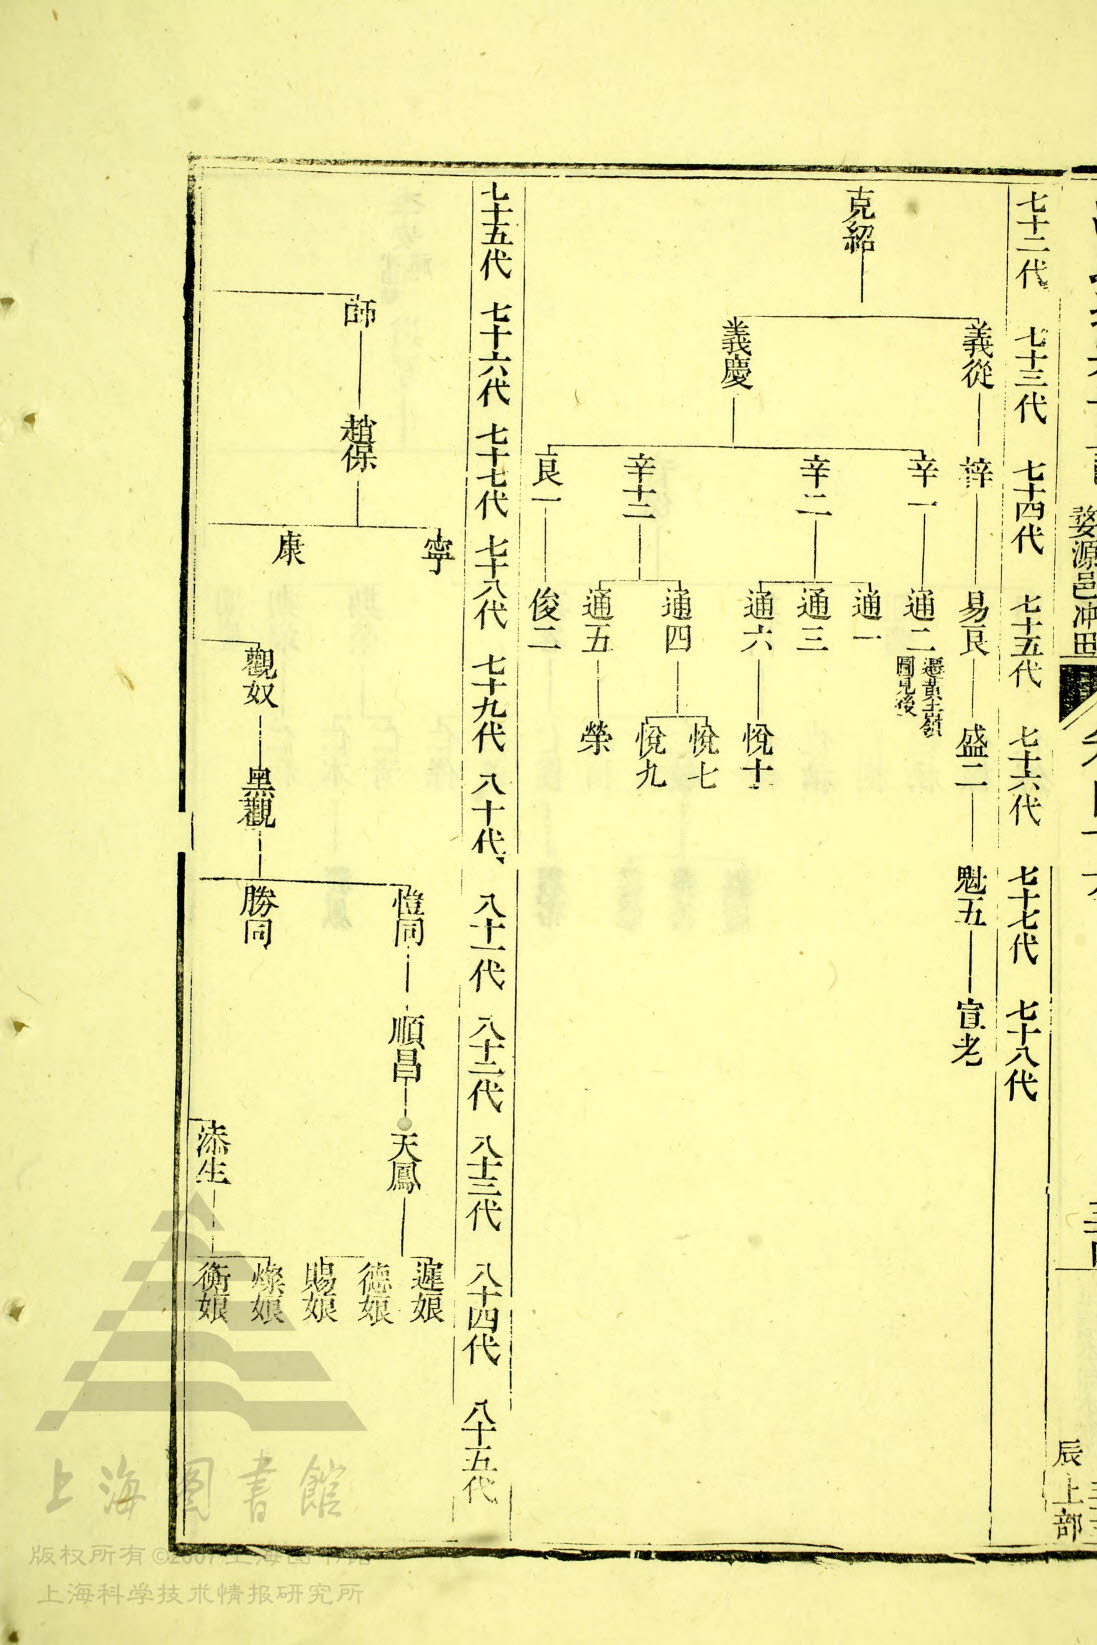 婺源邑冲田
辰
上部
七十二代 七十三代 七十四代 七十五代 七十六代 七十七代 七十八代
義從 梓 易良 盛二 魁五 宣老
辛一 通二 遷黃土嶺
圖見後
克紹
通一
辛二 通三
通六 悅十
義慶
悅七
通四
悅九
辛十二
通五 榮
良一 俊二
七十五代 七十六代 七十七代 七十八代 七十九代 八十代 八十一代 八十二代 八十三代 八十四代 八十五代
寧
遲娘
愷同 順昌 天鳳
德娘
師 趙保
賜娘
康
觀奴 黑觀 勝同
燦娘
添生
衡娘
上海圖書館
版权所有©2007上海图书馆
上海科学技术情报研究所